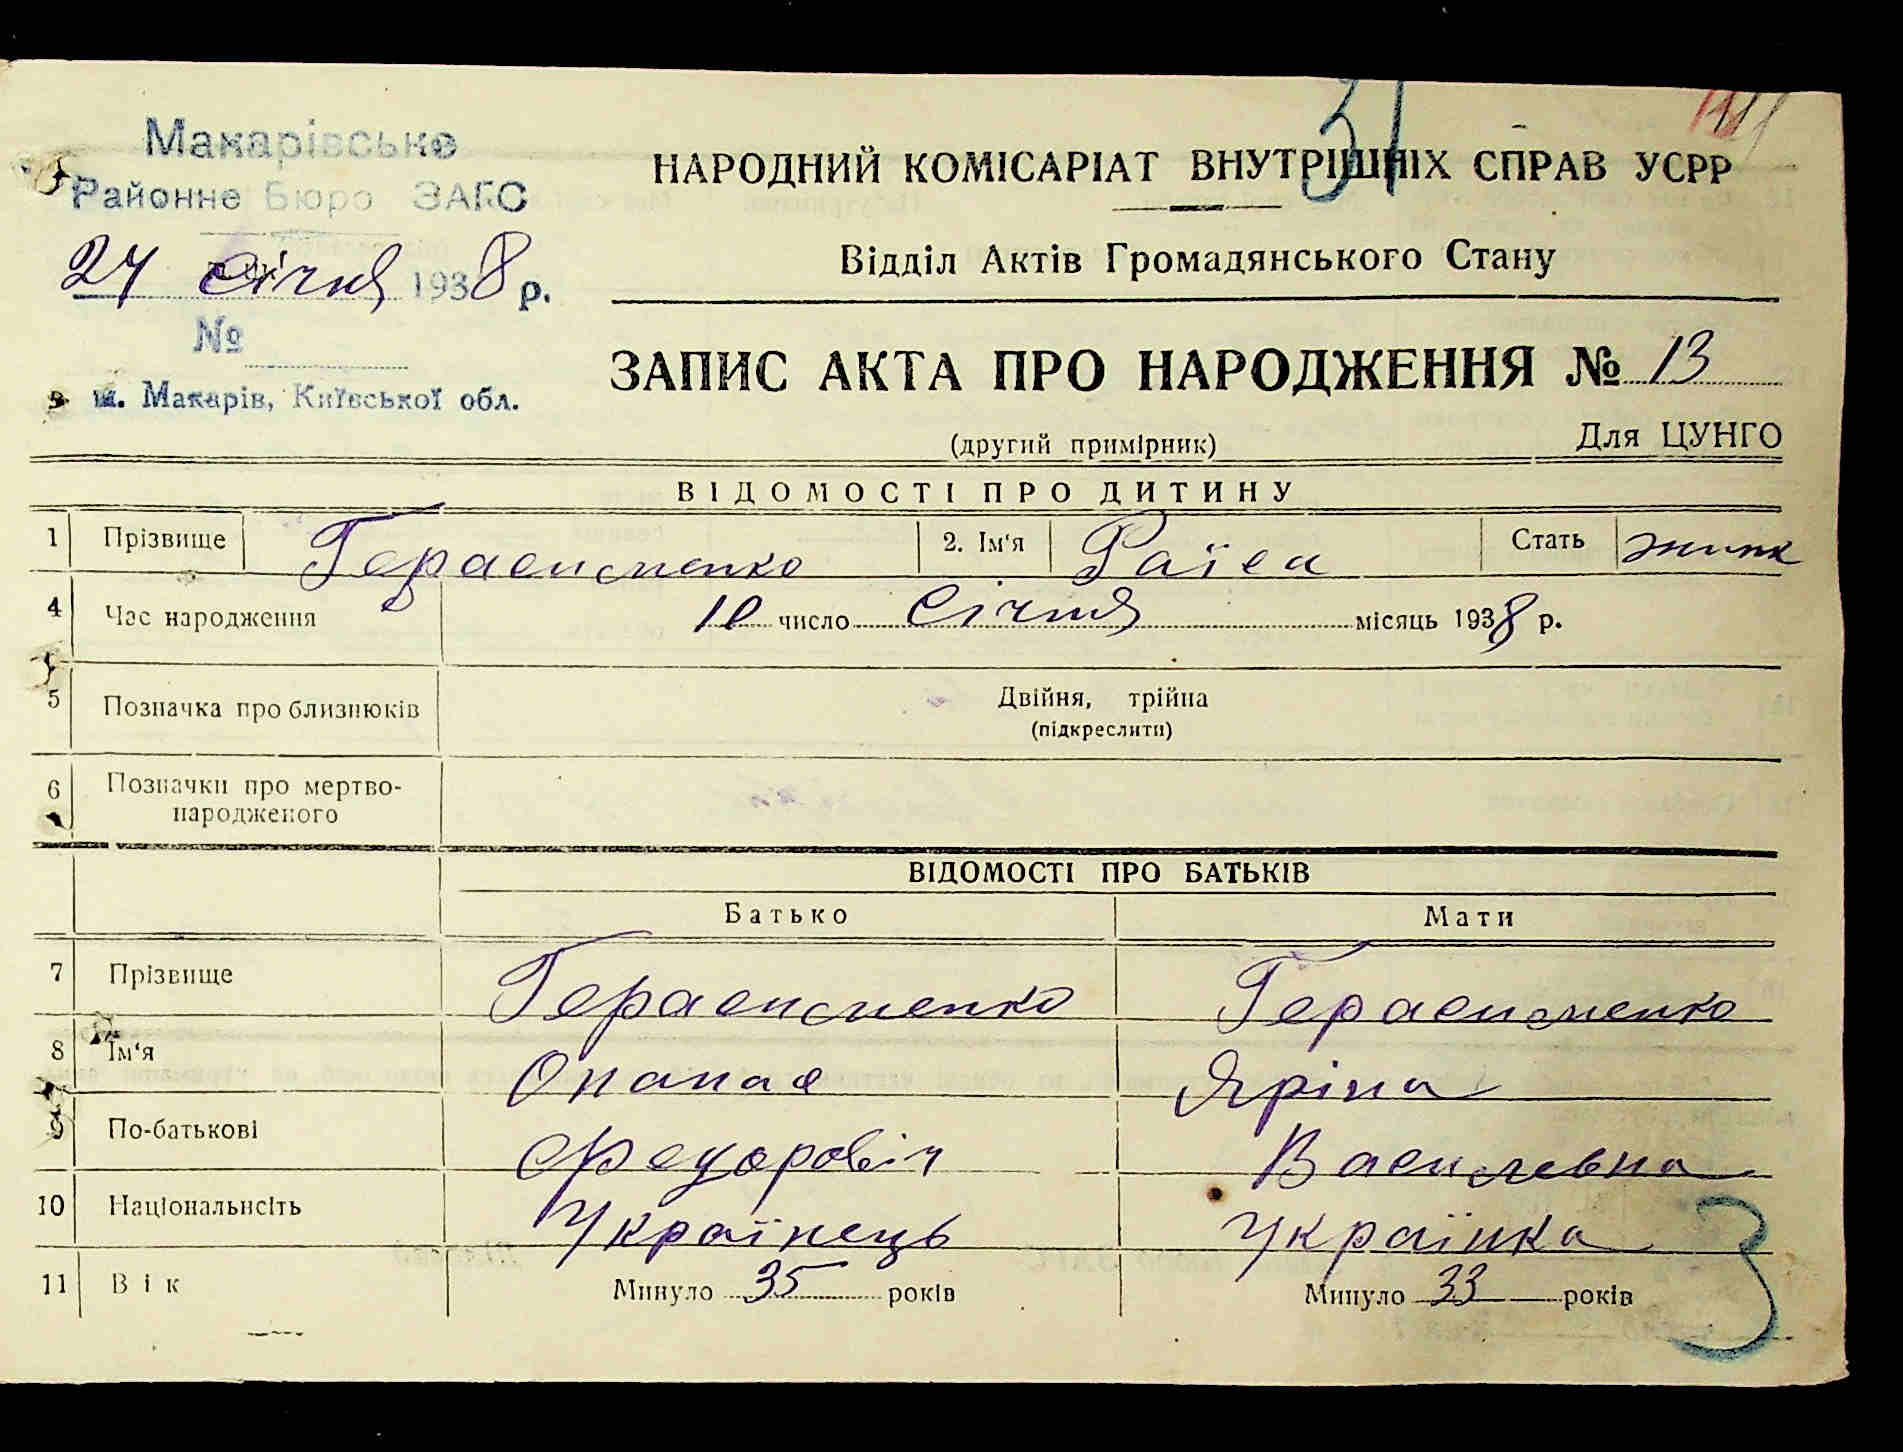 31
Макарівське
Районне Бюро ЗАГС
24 Січня 1938 р.
№
м. Макарів, Київської обл.
НАРОДНИЙ КОМІСАРІАТ ВНУТРІШНІХ СПРАВ УСРР
Відділ Актів Громадянського Стану
ЗАПИС АКТА ПРО НАРОДЖЕННЯ № 13
(другий примірник)
Для ЦУНГО
ВІДОМОСТІ ПРО ДИТИНУ
1 Прізвище Герасименко 2. Ім‘я Раїса Стать жинк
4 Час народження 10 число Січня місяць 1938 р.
5 Позначка про близнюків Двійня, трійна
(підкреслити)
6 Позначки про мертво-
народженого
ВІДОМОСТІ ПРО БАТЬКІВ
Батько Мати
7 Прізвище Герасименко Герасименко
8 Ім‘я Опанас Яріна
9 По-батькові Федоровіч Василевна
10 Національнсіть Українець Українка
11 Вік Минуло 35 років Минуло 33 років
3